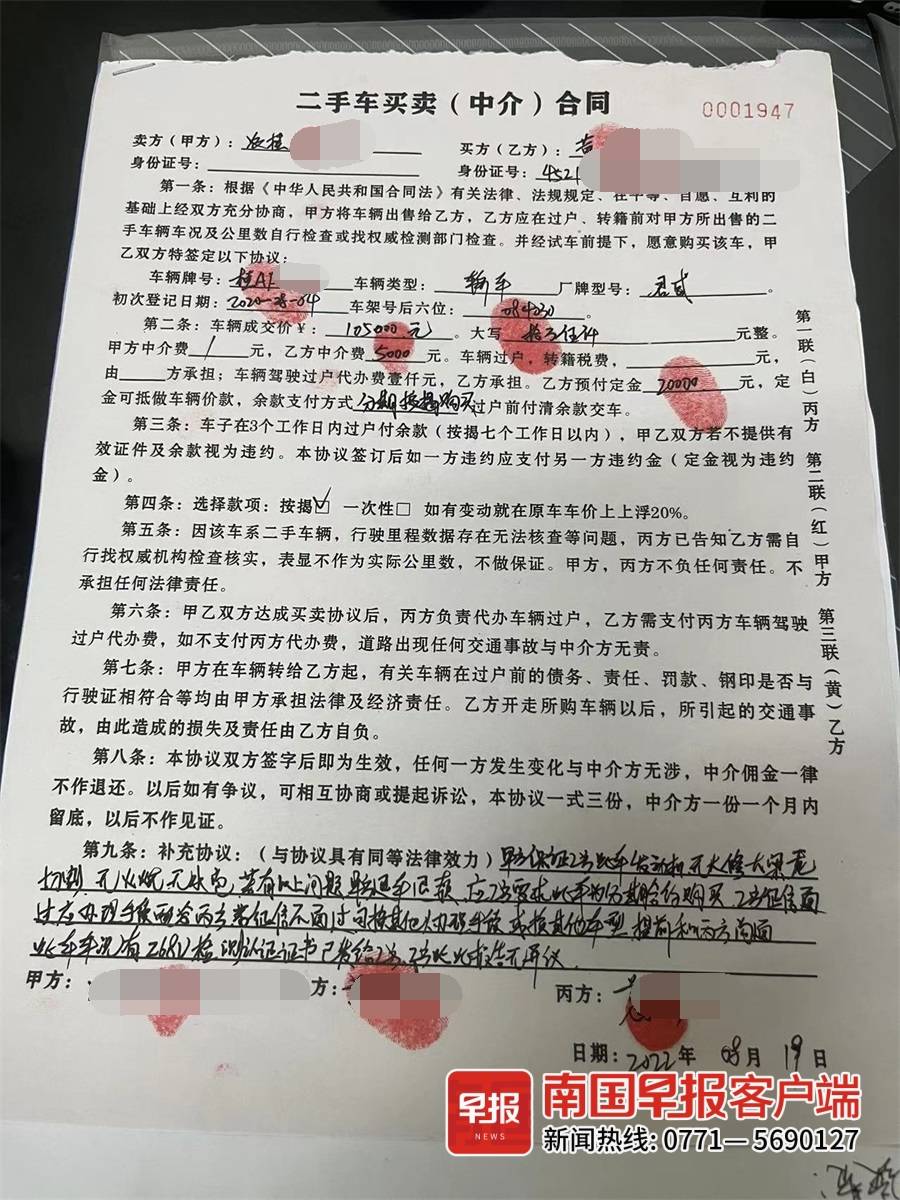 二手车买卖（中介）合同
0001947
卖方（甲方）：
买方（乙方）：
身份证号：
身份证号：4521
第一条：根据《中华人民共和国合同法》有关法律、法规规定、在平等、自愿、互利的
基础上经双方充分协商，甲方将车辆出售给乙方，乙方应在过户、转籍前对甲方所出售的二
手车辆车况及公里数自行检查或找权威检测部门检查。并经试车前提下，愿意购买该车，甲
乙双方特签定以下协议：
车辆牌号：桂A 车辆类型：轿车 厂牌型号：君威。
初次登记日期：2020 04 车架号后六位：084230
第二条：车辆成交价￥：105000元。大写 元整。
甲方中介费/元，乙方中介费5000元。车辆过户，转籍税费，元，
由 方承担；车辆驾驶过户代办费壹仟元，乙方承担。乙方预付定金20000元，定
金可抵做车辆价款，余款支付方式分期按揭购买过户前付清余款交车。
第三条：车子在3个工作日内过户付余款（按揭七个工作日以内），甲乙双方若不提供有
效证件及余款视为违约。本协议签订后如一方违约应支付另一方违约金（定金视为违约
金）。
第四条：选择款项：按揭☑ 一次性□ 如有变动就在原车车价上上浮20%。
第五条：因该车系二手车辆，行驶里程数据存在无法核查等问题，丙方已告知乙方需自
行找权威机构检查核实，表显不作为实际公里数，不做保证。甲方，丙方不负任何责任。不
承担任何法律责任。
第六条：甲乙双方达成买卖协议后，丙方负责代办车辆过户，乙方需支付丙方车辆驾驶
过户代办费，如不支付丙方代办费，道路出现任何交通事故与中介方无责。
第七条：甲方在车辆转给乙方起，有关车辆在过户前的债务、责任、罚款、钢印是否与
行驶证相符合等均由甲方承担法律及经济责任。乙方开走所购车辆以后，所引起的交通事
故，由此造成的损失及责任由乙方自负。
第八条：本协议双方签字后即为生效，任何一方发生变化与中介方无涉，中介佣金一律
不作退还。以后如有争议，可相互协商或提起诉讼，本协议一式三份，中介方一份一个月内
留底，以后不作见证。
第九条：补充协议：（与协议具有同等法律效力）甲方保证乙方此车发动机无大修大梁无
切割 无火烧无水泡 若有以上问题 退车退款 应乙方要求此车为分期 购买 乙方征信通
过后办理手续 丙方 征信不通过 换其他人办理手续 或换其他车型 提前和丙方沟通
此车车况有268V检测认证证书已发给乙方
甲方：
方：
丙方：
日期：2022年 08月 19日
第一联（白）丙方
第二联（红）甲方
第三联（黄）乙方
早报
NEWS
南国早报客户端
新闻热线：0771—5690127